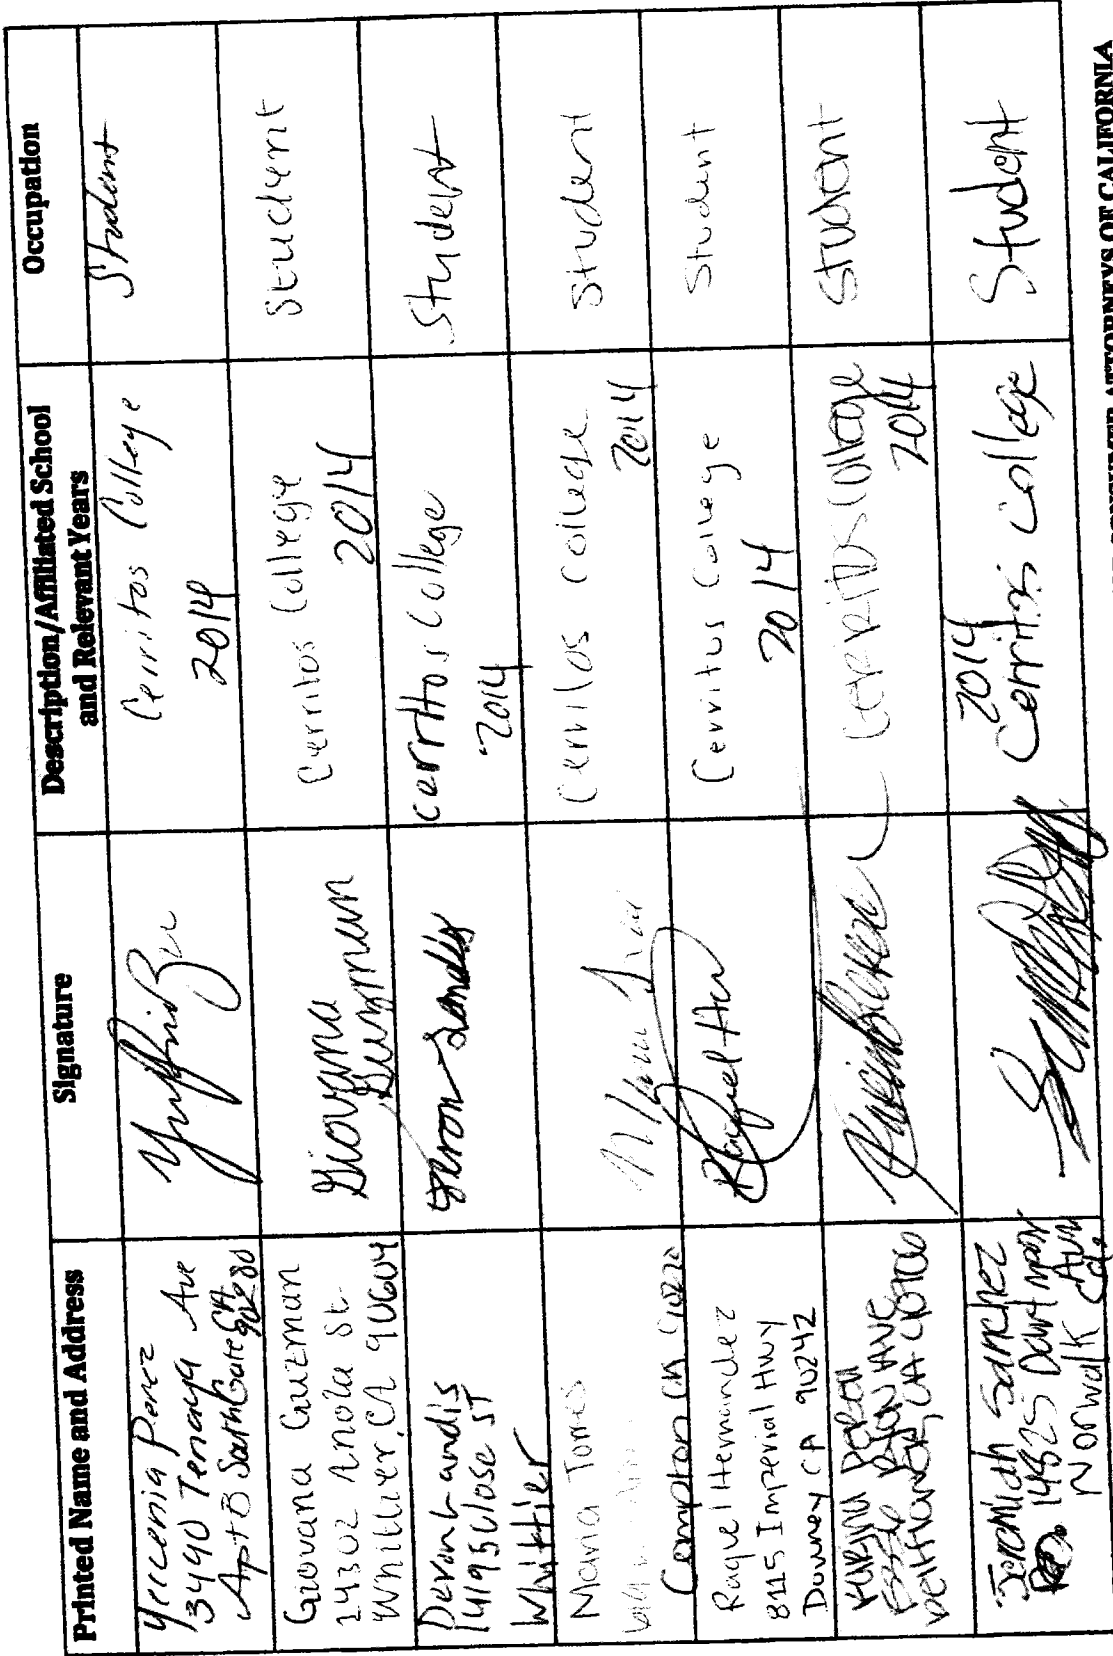 Printed Name and Address
Signature
Description/Affiliated School
and Relevant Years
Occupation
Yeccenia Perez
3440 Tenaya Ave
Apt B South Gate CA
90280
Cerritos College
2014
Student
Giovana Guzman
14302 Anola St.
Whittier, CA 90604
Giovana
Guzman
Cerritos College
2014
Student
Devon Landis
14195 Close ST
Whittier
Devon Landis
cerritos College
2014
Student
Maria Torres
Compton CA 90220
Maria
Cerritos College
2014
Student
Raquel Hernandez
8115 Imperial Hwy
Downey CA 90242
Raquel Her
Cerritos College
2014
Student
Bellflower, CA 90706
Cerritos College
2014
Student
Jeremiah Sanchez
14825 Dartmoor
Ave
Norwalk Ca.
2014
Cerritos College
Student
CONSUMER ATTORNEYS OF CALIFORNIA